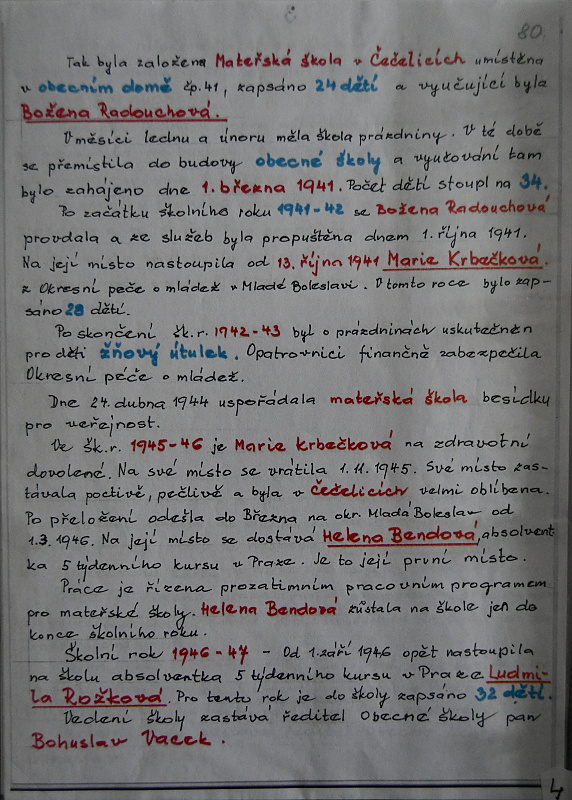 80.
Tak byla založena Mateřská škola v Čečelicích umístěna
v obecním domě čp. 41, zapsáno 24 dětí a vyučující byla
Božena Radouchová.
V měsíci lednu a únoru měla škola prázdniny. V té době
se přemístila do budovy obecné školy a vyučování tam
bylo zahájeno dne 1. března 1941. Počet dětí stoupl na 34.
Po začátku školního roku 1941-42 se Božena Radouchová
provdala a ze služeb byla propuštěna dnem 1. října 1941.
Na její místo nastoupila od 13. října 1941 Marie Krbečková.
z Okresní peče o mládež v Mladé Boleslavi. V tomto roce bylo zap-
sáno 28 dětí.
Po skončení šk.r. 1942-43 byl o prázdninách uskutečněn
pro děti žňový útulek. Opatrovnici finančně zabezpečila
Okresní péče o mládež.
Dne 24. dubna 1944 uspořádala mateřská škola besídku
pro veřejnost.
Ve šk.r. 1945-46 je Marie Krbečková na zdravotní
dovolené. Na své místo se vrátila 1.11.1945. Své místo zas-
távala poctivě, pečlivě a byla v Čečelicích velmi oblíbena.
Po přeložení odešla do Března na okr. Mladá Boleslav od
1.3.1946. Na její místo se dostává Helena Bendová, absolvent
ka 5 týdenního kursu v Praze. Je to její první místo.
Práce je řízena prozatimním pracovním programem
pro mateřské školy. Helena Bendová zůstala na škole jen do
konce školního roku.
Školní rok 1946-47 - Od 1. září 1946 opět nastoupila
na školu absolventka 5 týdenního kursu v Praze Ludmi-
la Rožková. Pro tento rok je do školy zapsáno 32 dětí.
Vedení školy zastává ředitel Obecné školy pan
Bohuslav Vacek.
4